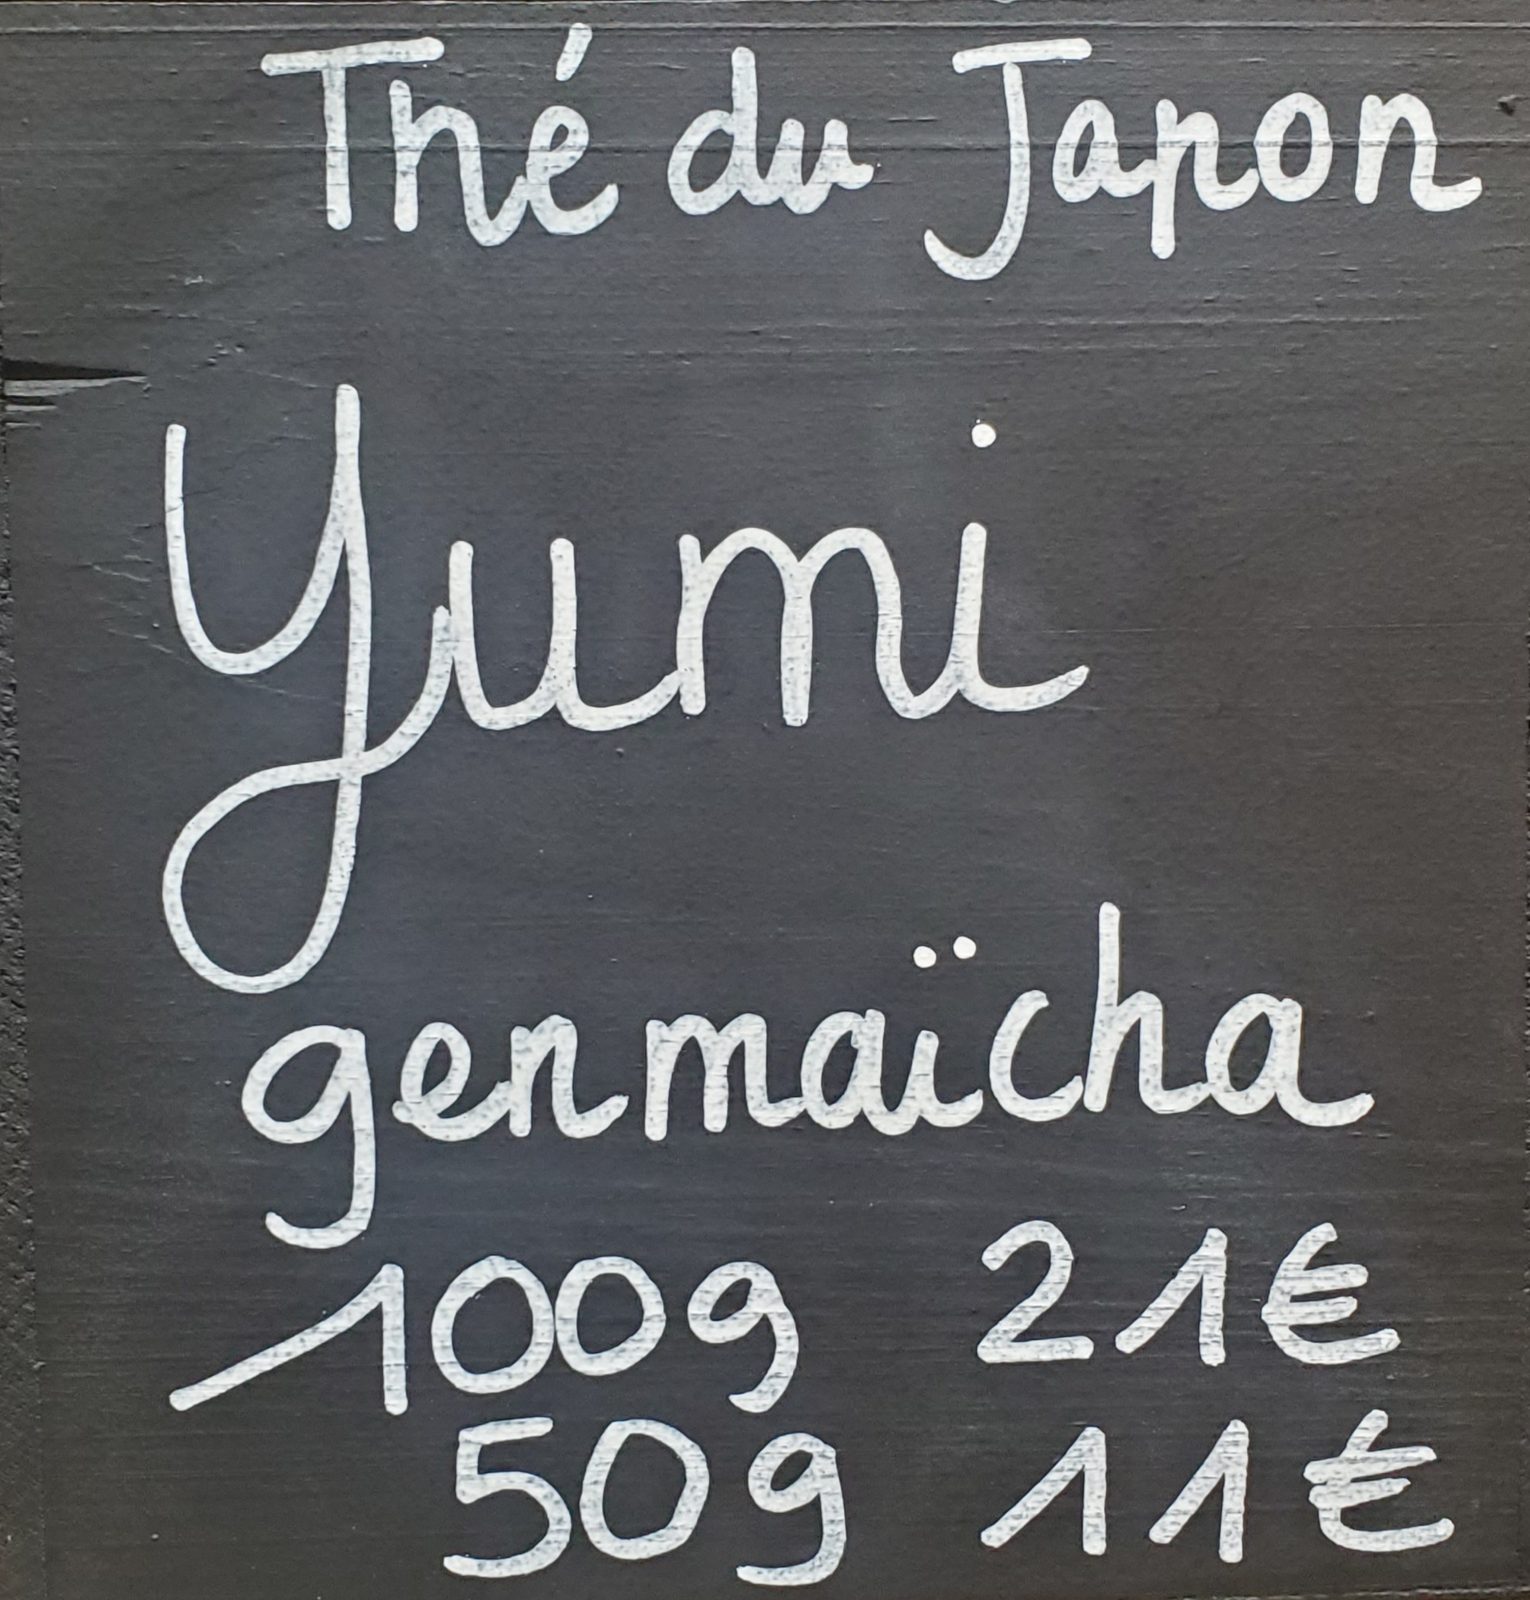 Thé du Japon
Yumi
genmaïcha
100g 21€
50g 11€